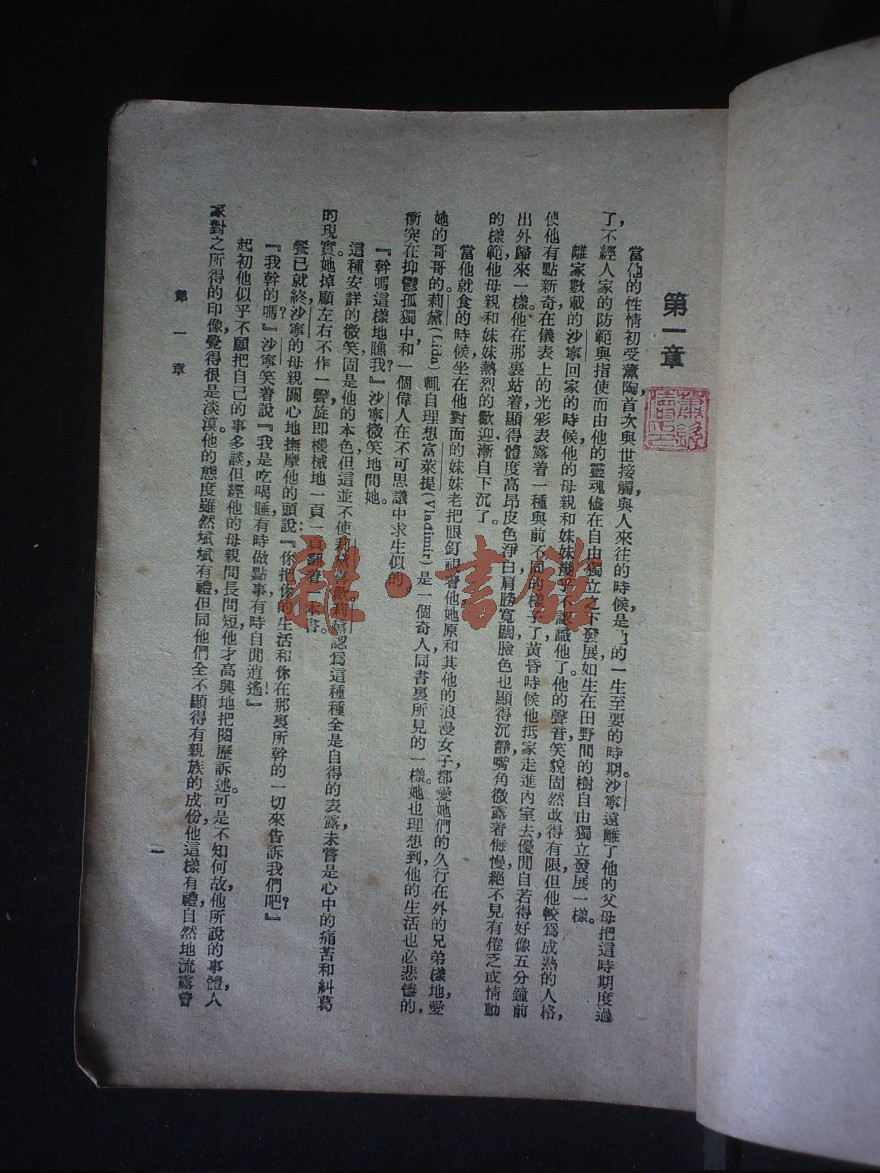 第一章
當他的性情初受薰陶,首次與世接觸,與人來往的時候,是他的一生至要的時期。沙寧遠離了他的父母,把這時期度過
了,不經人家的防範與指使,而由他的靈魂儘在自由獨立之下發展,如生在田野間的樹自由獨立發展一樣。
離家數載的沙寧回家的時候,他的母親和妹妹幾乎不認識他了。他的聲音笑貌,固然改得有限,但他較爲成熟的人格,
使他有點新奇,在儀表上的光彩,表露着一種與前不同的樣子了。黃昏時候,他抵家,走進內室去,優閒自若得好像五分鐘前
出外歸來一樣。他在那裏站着,顯得體度高昂,皮色淨白,肩膀寬闊,臉色也顯得沉靜,嘴角微露着侮慢,絕不見有倦乏或情動
的樣範,他母親和妹妹熱烈的歡迎,漸自下沉了。
當他就食的時候,坐在他對面的妹妹,老把眼釘視着他。她原和其他的浪漫女子,都愛她們的久行在外的兄弟樣地,愛
她的哥哥的。莉黛(Lida)輒自理想富萊提(Vladimir)是一個奇人,同書裏所見的一樣。她也理想到他的生活也必悲慘的,
衝突在抑鬱孤獨中,和一個偉人在不可思議中求生似的。
『幹嗎這樣地瞧我?』沙寧微笑地問她。
這種安詳的微笑,固是他的本色,但這並不使莉黛喜歡。莉黛認爲這種種全是自得的表露,未嘗是心中的痛苦和糾葛
的現實。她掉顧左右,不作一聲,旋卽機械地一頁一頁翻着一本書。
餐已就終,沙寧的母親關心地撫摩他的頭說:『你把你的生活和你在那裏所幹的一切來告訴我們吧?』
『我幹的嗎?』沙寧笑着說『我是吃喝睡,有時做點事,有時自閒逍遙!』
起初他似乎不願把自己的事多談,但經他的母親問長問短,他才高興地把閱歷訴述。可是不知何故,他所說的事體,人
家對之所得的印像,覺得很是淡漠。他的態度雖然斌斌有禮,但同他們全不顯得有親族的成份,他這樣有禮,自然地流露着
第一章
一
雜·書館